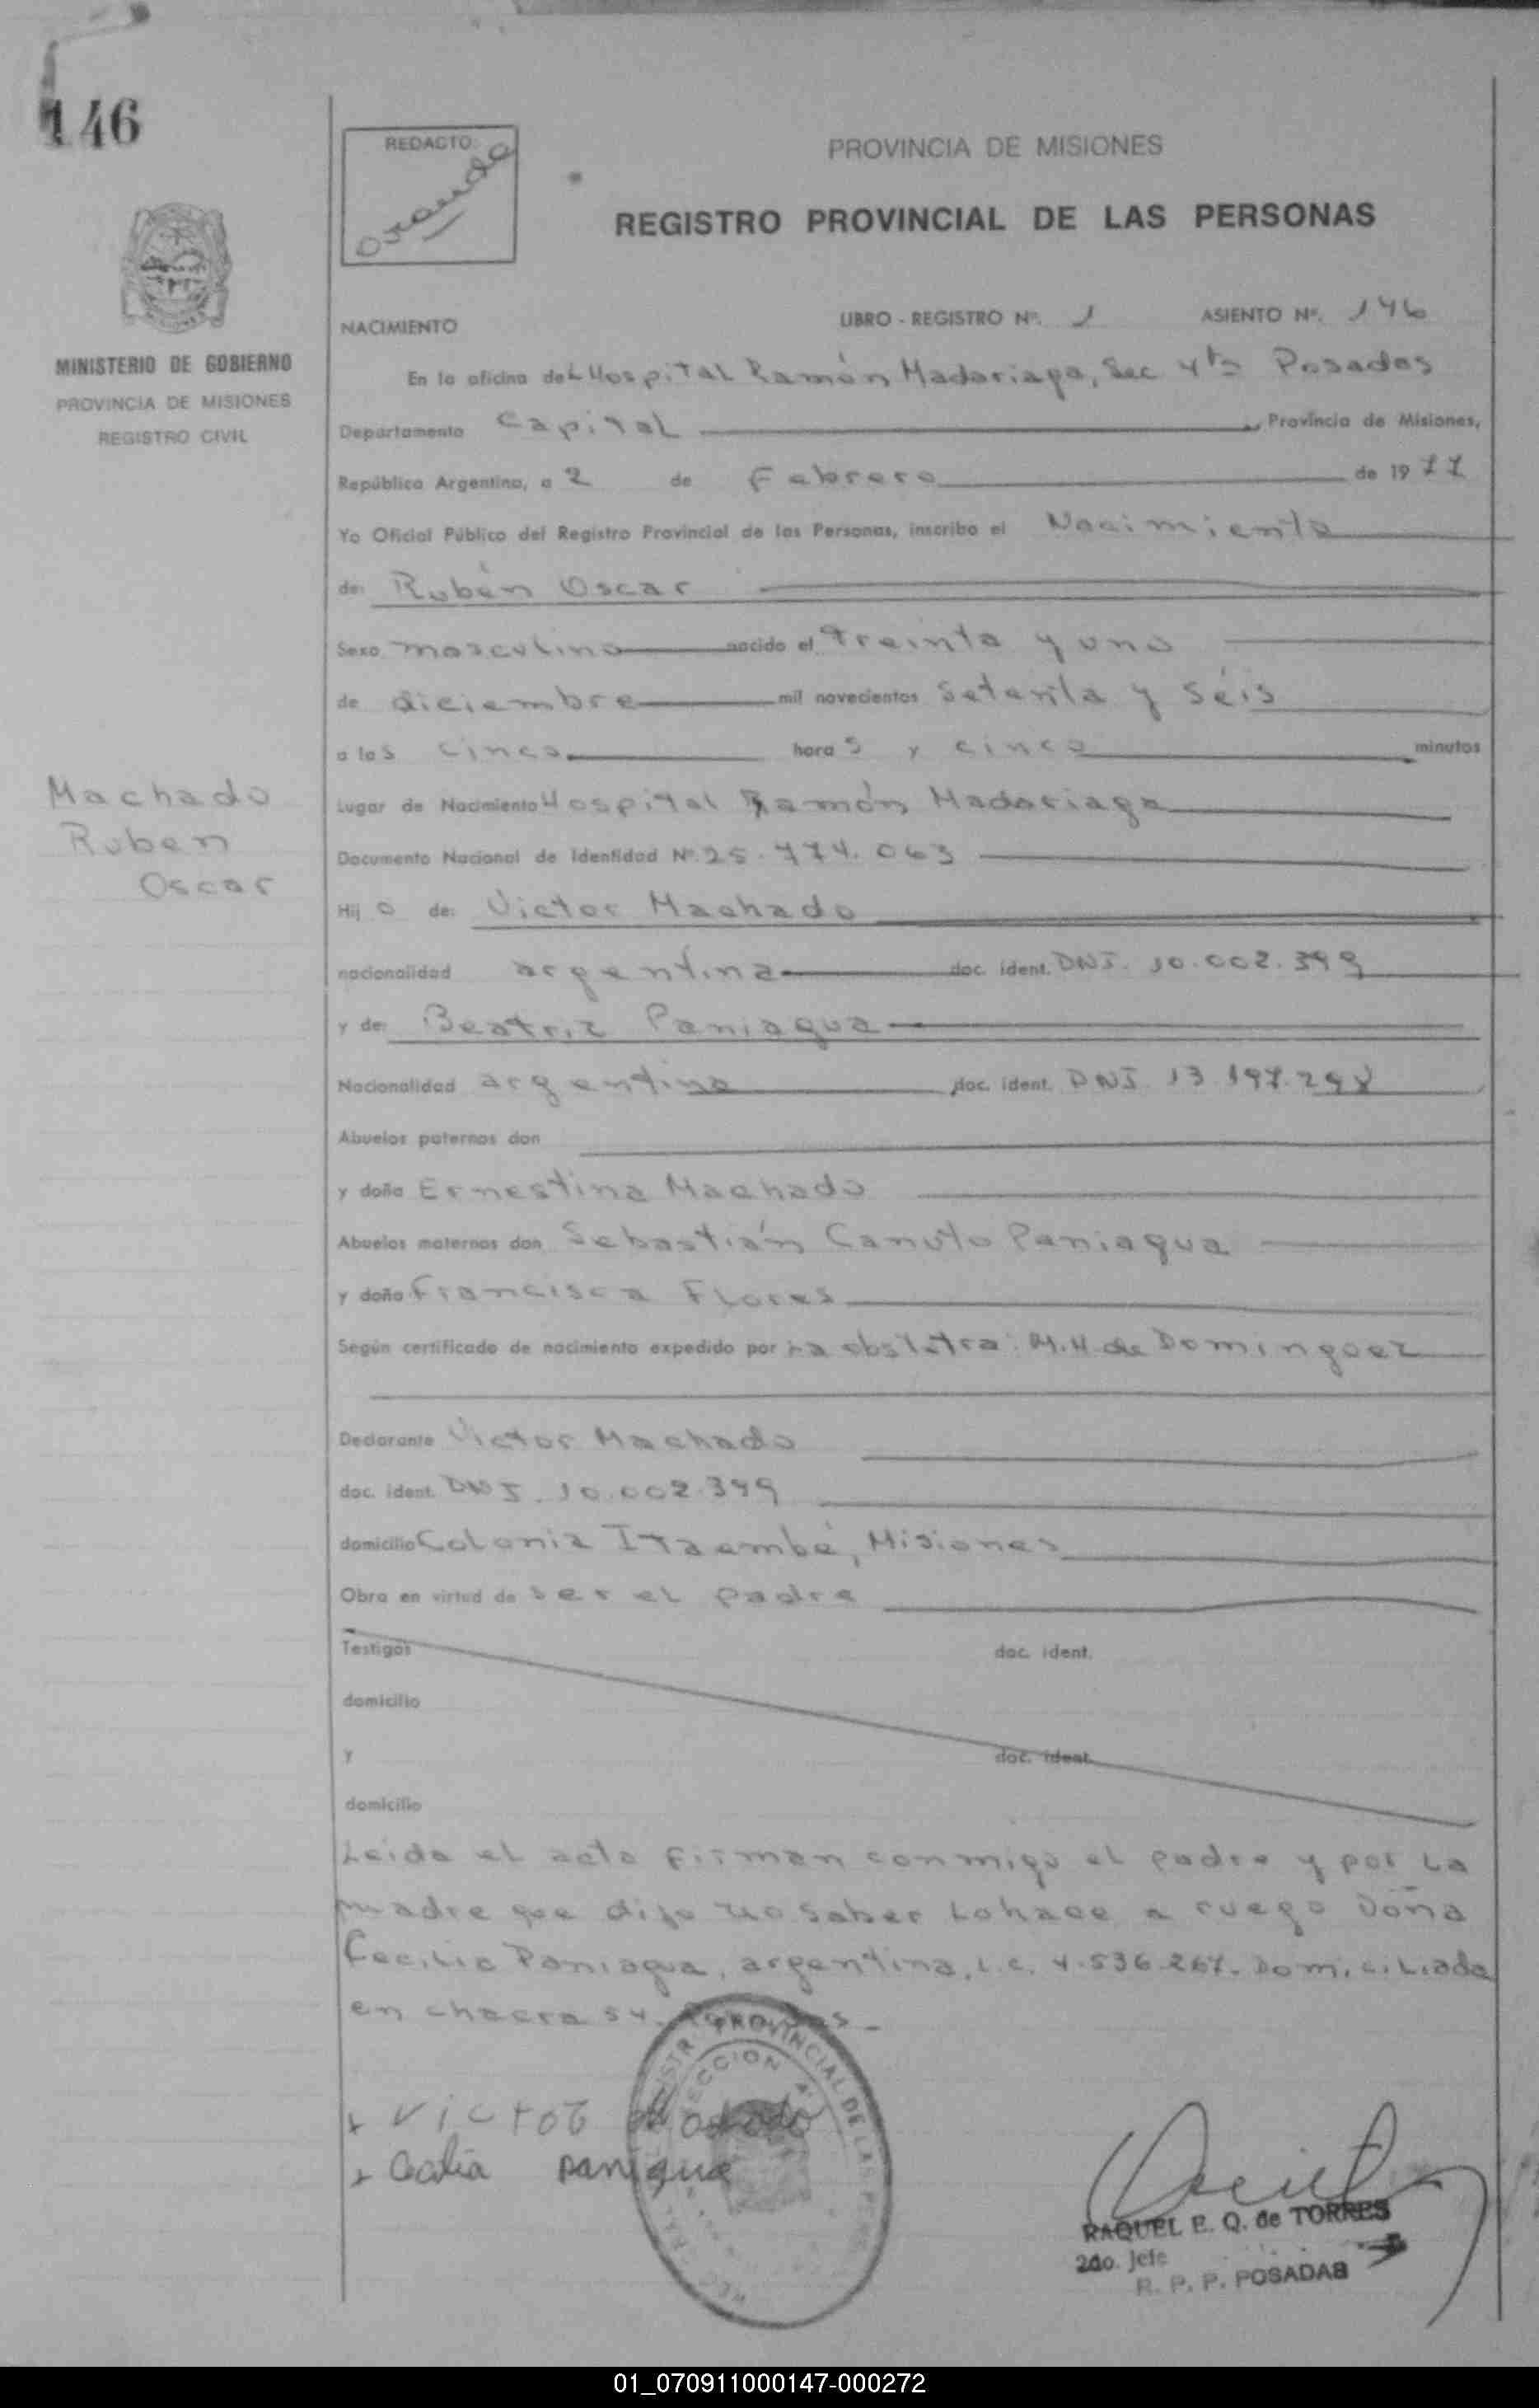 146
REDACTO:
PROVINCIA DE MISIONES
REGISTRO PROVINCIAL DE LAS PERSONAS
MINISTERIO DE GOBIERNO
PROVINCIA DE MISIONES
REGISTRO CIVIL
NACIMIENTO
LIBRO - REGISTRO Nº. 1 ASIENTO Nº. 146
En la oficina del Hospital Ramón Madariaga, Sec 4ta Posadas
Departamento Capital, Provincia de Misiones,
República Argentina, a 2 de Febrero de 1977
Yo Oficial Público del Registro Provincial de las Personas, inscribo el Nacimiento
de: Rubén Oscar
Sexo masculino nacido el treinta y uno
de diciembre mil novecientos setenta y séis
a las cinco horas y cinco minutos
Machado
Ruben
Oscar
Lugar de Nacimiento Hospital Ramón Madariaga
Documento Nacional de Identidad Nº 25.774.063
Hijo de: Victor Machado
nacionalidad argentina doc. ident. DNI. 10.002.399
y de: Beatriz Paniagua
Nacionalidad argentina doc. ident. DNI. 13.197.298
Abuelos paternos don
y doña Ernestina Machado
Abuelos maternos don Sebastián Canuto Paniagua
y doña Francisca Flores
Según certificado de nacimiento expedido por La obstetra: M.H. de Dominguez
Declarante Victor Machado
doc. ident. DNI. 10.002.399
domicilio Colonia Itaembé, Misiones
Obra en virtud de ser el padre
Testigos doc. ident.
domicilio
y doc. ident.
domicilio
Leida el acta firman conmigo el padre y por la
madre que dijo no saber lo hace a ruego Doña
Cecilia Paniagua, argentina, L.C. 4.536.267. Domiciliada
en chacra 54. Posadas-
PROVINCIAL DE LAS
SECCION 4
+ Victor Machado
+ Cecilia Paniagua
RAQUEL E. Q. de TORRES
2do. Jefe
R. P. P. POSADAS
01_070911000147-000272